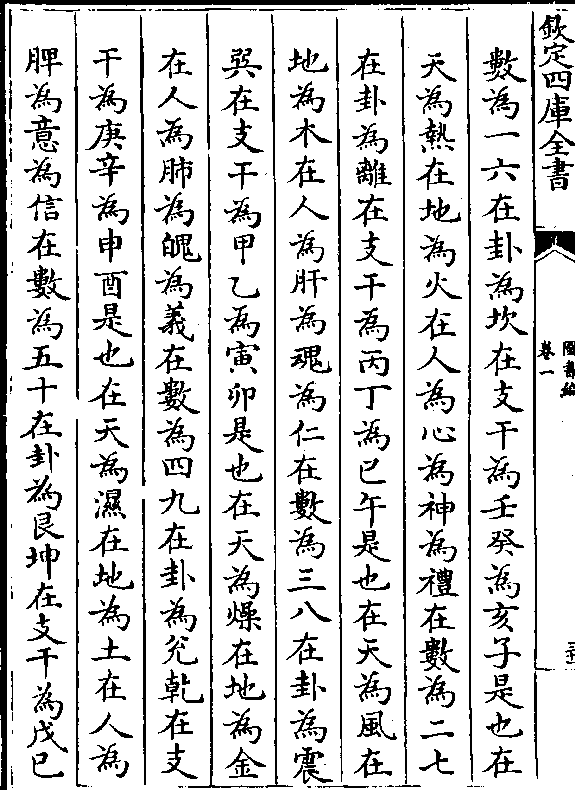 欽定四庫全書
圖書編
卷一
數為一六在卦為坎在支干為壬癸為亥子是也在
天為熱在地為火在人為心為神為禮在數為二七
在卦為離在支干為丙丁為巳午是也在天為風在
地為木在人為肝為魂為仁在數為三八在卦為震
巽在支干為甲乙為寅卯是也在天為燥在地為金
在人為肺為魄為義在數為四九在卦為兊乾在支
干為庚辛為申酉是也在天為濕在地為土在人為
脾為意為信在數為五十在卦為艮坤在支干為戊己